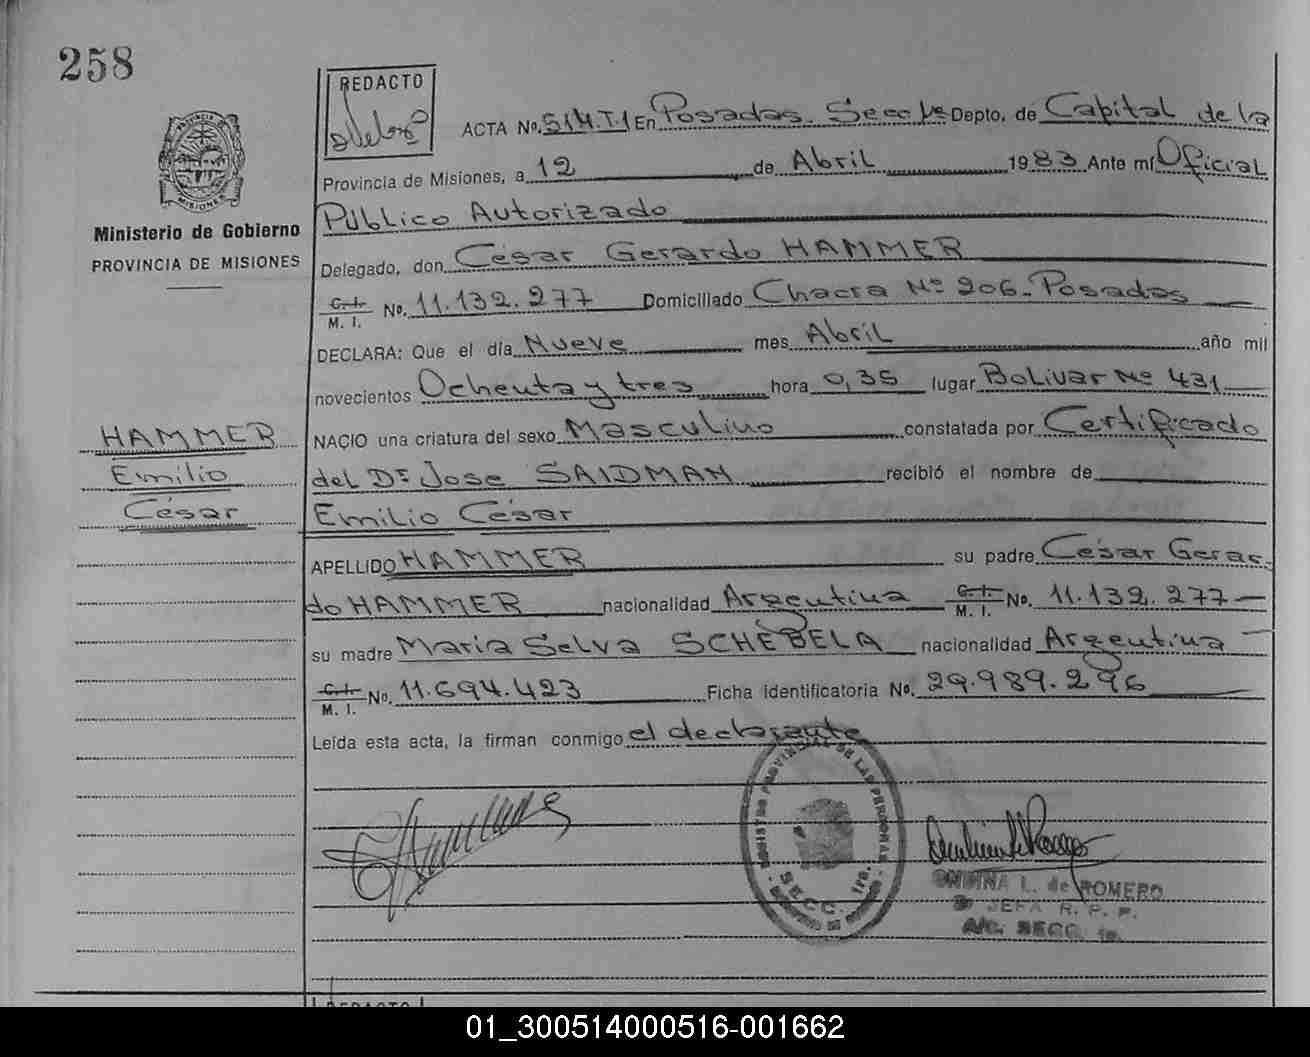 258
REDACTO
PROVINCIA DE
MISIONES
Ministerio de Gobierno
PROVINCIA DE MISIONES
ACTA No. 514.T1 En Posadas Secc 1ª Depto. de Capital de la
Provincia de Misiones, a 12 de Abril 1983 Ante mí Oficial
Público Autorizado
Delegado, don César Gerardo HAMMER
C.I. M. I. No. 11.132.277 Domiciliado Chacra Nº 206-Posadas
DECLARA: Que el día Nueve mes Abril año mil
novecientos Ochenta y tres hora 0,35 lugar Bolivar Nº 431
NACIO una criatura del sexo Masculino constatada por Certificado
del Dr Jose SAIDMAN recibió el nombre de
Emilio César
HAMMER
Emilio
César
APELLIDO HAMMER su padre César Gerar-
do HAMMER nacionalidad Argentina C.I. M. I. No. 11.132.277
su madre Maria Selva SCHEBELA nacionalidad Argentina
C.I. M. I. No. 11.694.423 Ficha identificatoria No. 29.989.296
Leída esta acta, la firman conmigo el declarante
REGISTRO PROVINCIAL DE LAS PERSONAS
SECC. 1ra.
L. de ROMERO
JEFA R. P. P.
A/C. SECC. 1a.
REDACTO
01_300514000516-001662